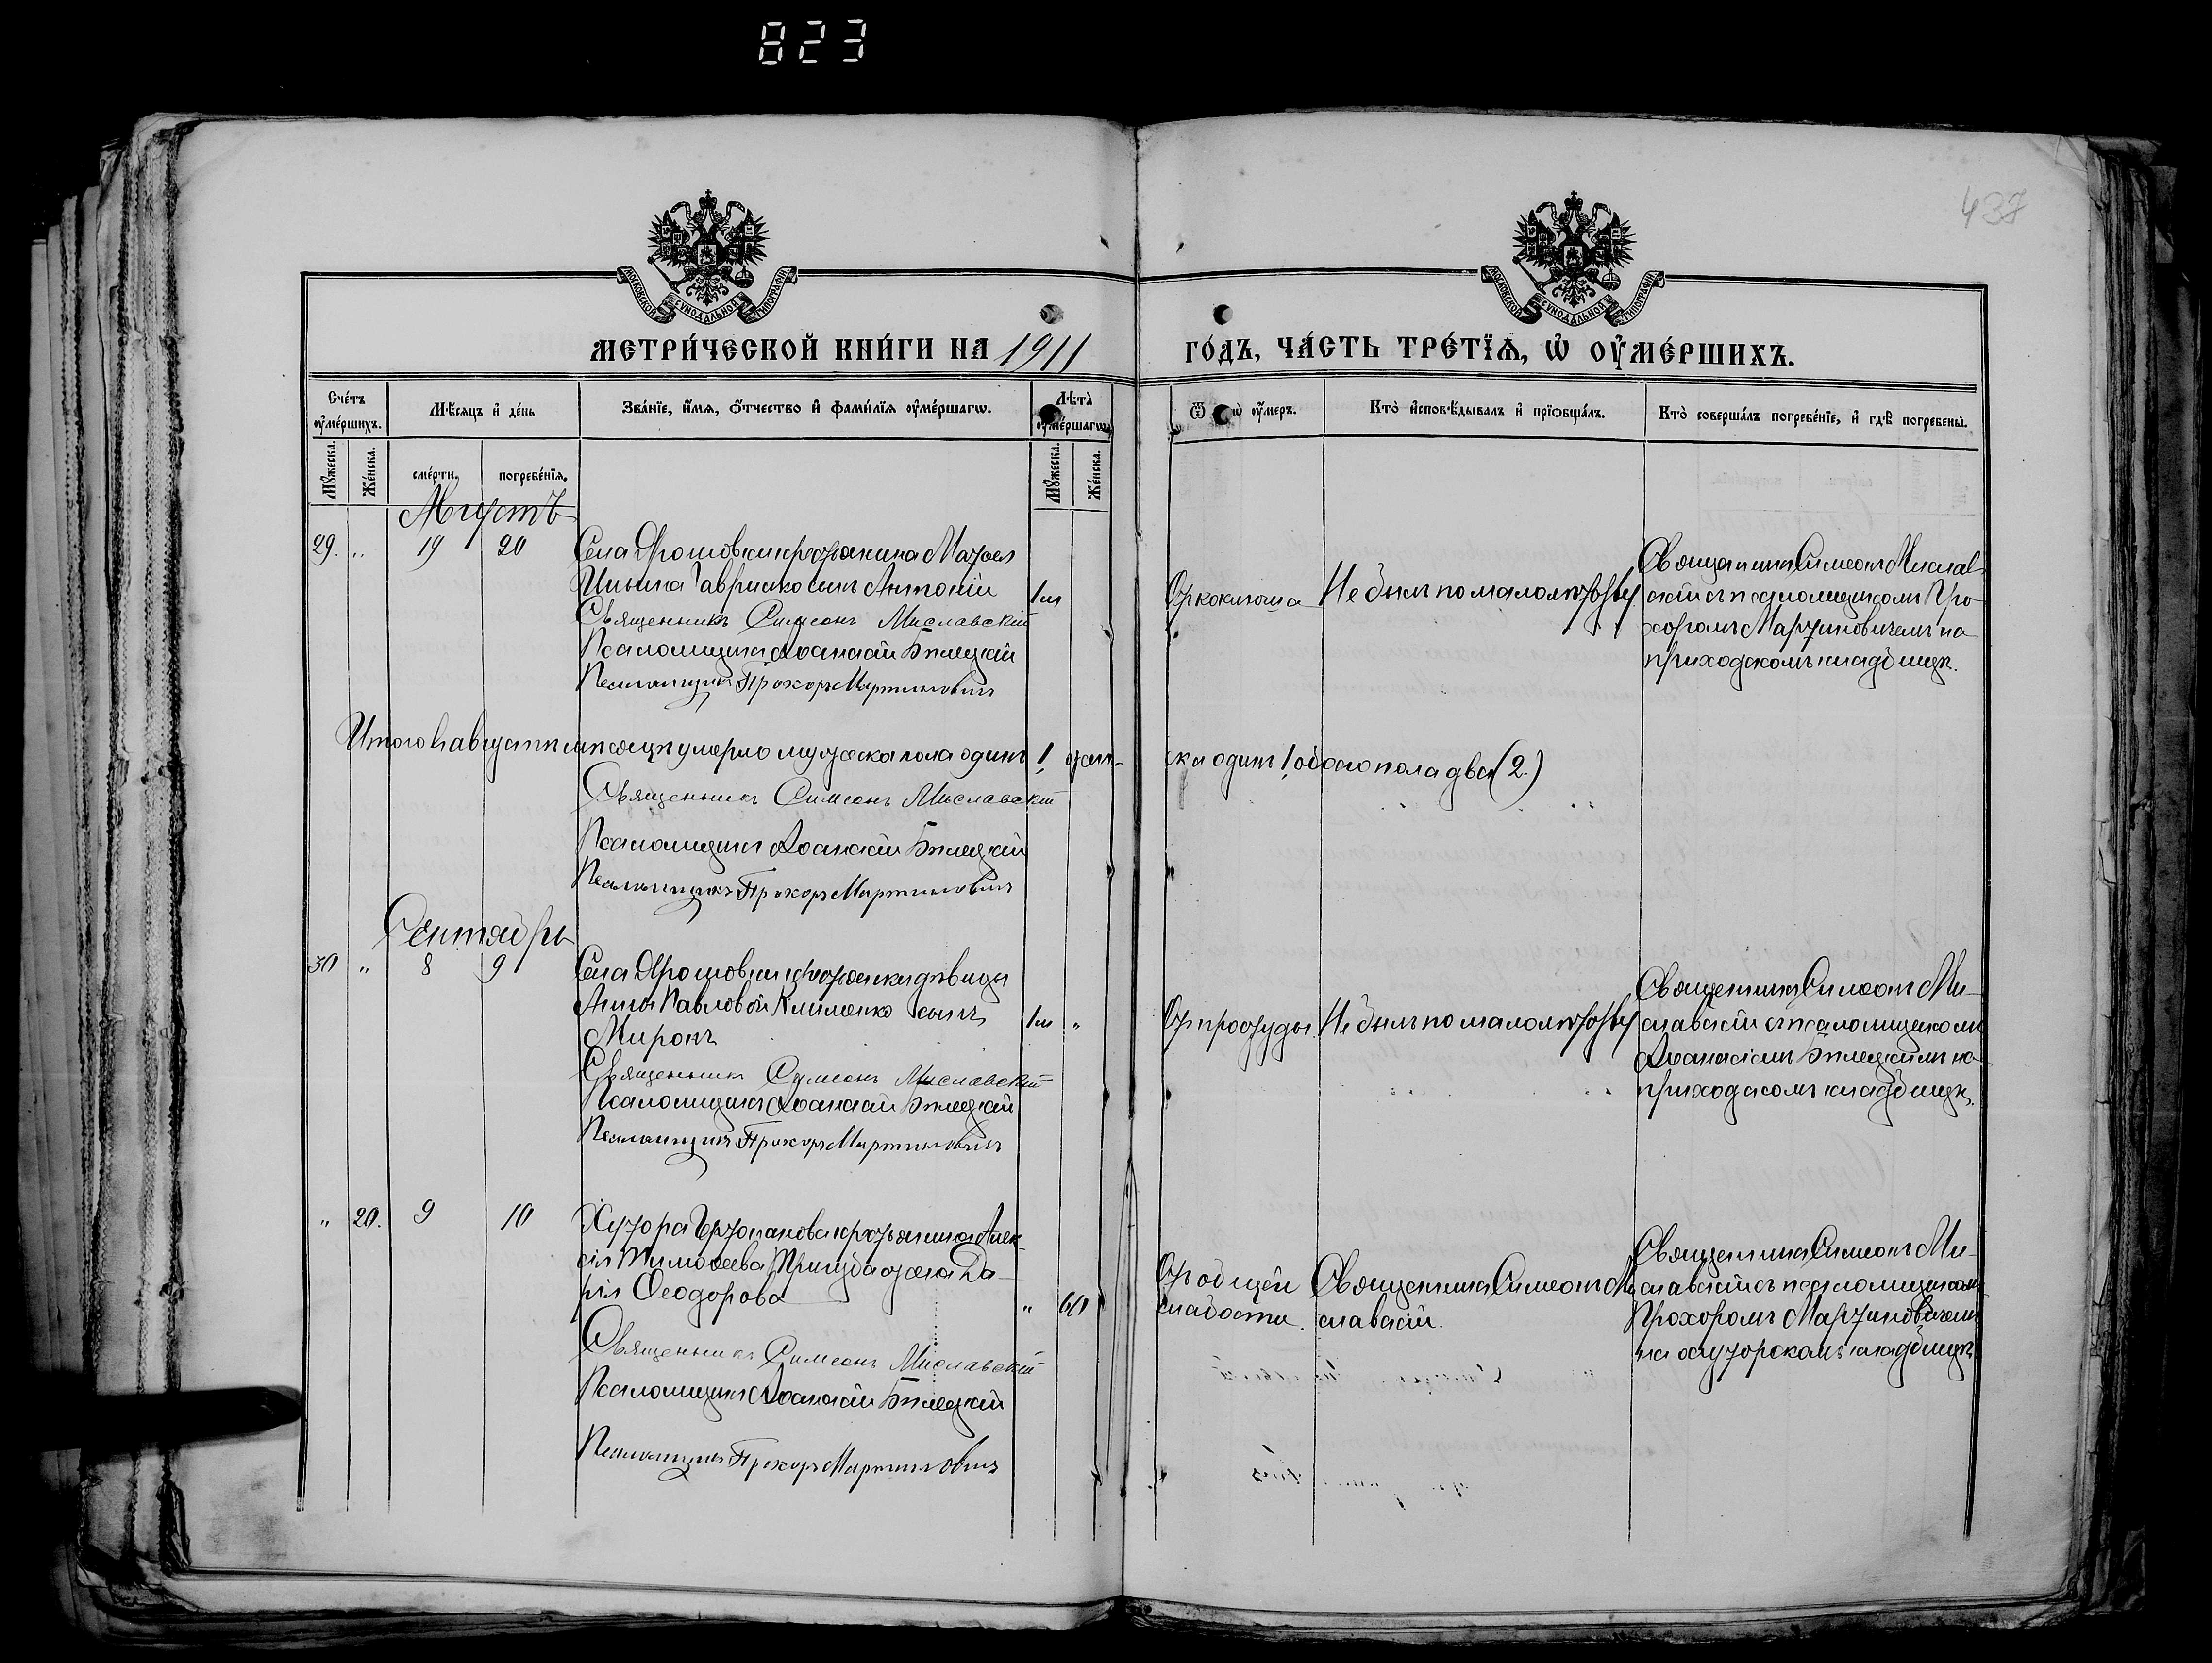 823
437
МОСКОВСКОЙ СѴНОДАЛЬНОЙ ТИПОГРАФІИ
МОСКОВСКОЙ СѴНОДАЛЬНОЙ ТИПОГРАФІИ
МЕТРИ́ЧЕСКОЙ КНИ́ГИ НА 1911
ГО́ДЪ, ЧА́СТЬ ТРЕ́ТЇѦ, Ѽ ОУ҆МЕ́РШИХЪ.
Сче́тъ оу҆ме́ршихъ.
Мѣ́сяцъ и҆ де́нь
Зва́нїе, и҆́мѧ, ѻ҆́тчество и҆ фами́лїѧ оу҆ме́ршагѡ.
Лѣ́та̀ оу҆ме́ршагѡ
Ѿ оу҆́меръ.
Кто̀ и҆сповѣ́дывалъ и҆ прїѡбща́лъ.
Кто̀ соверша́лъ погребе́нїе, и҆ гдѣ̀ погребены̀.
Мꙋ́жеска.
Же́нска.
сме́рти.
погребе́нїѧ.
Мꙋ́жеска.
Же́нска.
Августъ
29. „ 19 20 Села Ярошовки крестьянина Матвея
Ильина Гавришко сынъ Антоній 1м
Священникъ Симеонъ Миславскій
Псаломщикъ Аѳанасій Бѣлецкій
Псаломщикъ Прохоръ Мартиновичъ
От коклюша
Не былъ по малолѣтству
Священникъ Симеонъ Мислав-
скій съ псаломщикомъ Про-
хоромъ Мартиновичемъ на
приходскомъ кладбищѣ.
Итого въ августѣ мѣсяцѣ умерло мужеска пола одинъ 1, жен-
ска одинъ 1, обоего пола два (2.)
Священникъ Симеонъ Миславскій
Псаломщикъ Аѳанасій Бѣлецкій
Псаломщикъ Прохоръ Мартиновичъ
Сентябрь
30 „ 8 9 Села Ярошовки крестьянки дѣвицы
Анны Павловой Клименко сынъ 1м „
Миронъ
Священникъ Симеонъ Миславскій
Псаломщикъ Аѳанасій Бѣлецкій
Псаломщикъ Прохоръ Мартиновичъ
От простуды
Не былъ по малолѣтству
Священникъ Симеонъ Ми-
славскій съ псаломщикомъ
Аѳанасіемъ Бѣлецкимъ на
приходскомъ кладбищѣ.
„ 20. 9 10 Хутора крестьянина Алек-
сія Тимоѳеева жена Да-
рія Ѳеодорова „ 60
Священникъ Симеонъ Миславскій
Псаломщикъ Аѳанасій Бѣлецкій
Псаломщикъ Прохоръ Мартиновичъ
От общей
слабости.
Священникъ Симеонъ Ми-
славскій.
Священникъ Симеонъ Ми-
славскій съ псаломщикомъ
Прохоромъ Мартиновичемъ
на хуторскомъ кладбищѣ